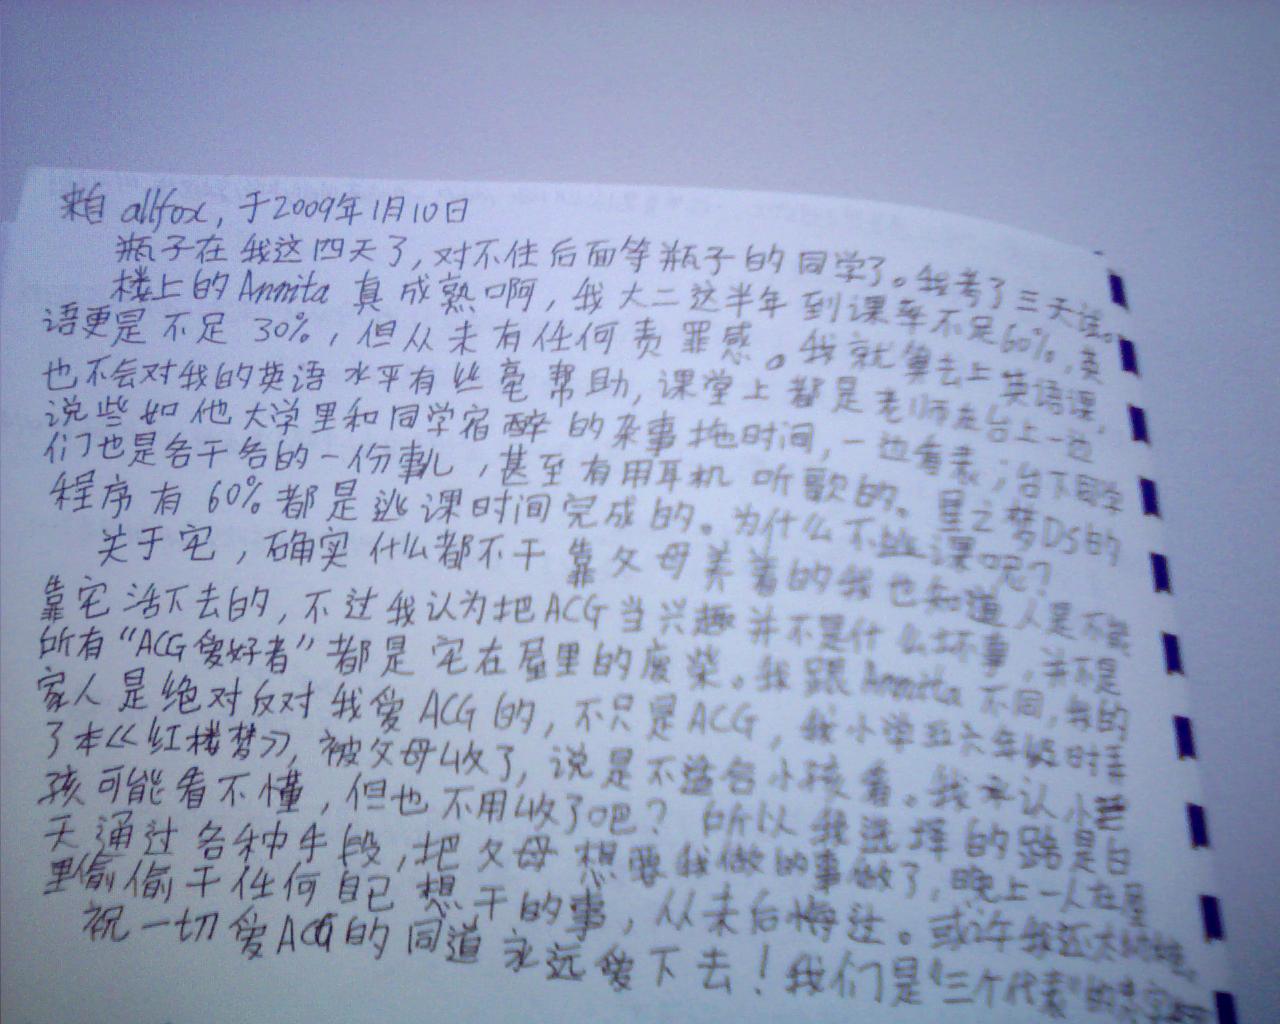 来自 allfox, 于2009年1月10日
瓶子在我这四天了,对不住后面等瓶子的同学了。我考了三天试。
楼上的Annita真成熟啊,我大二这半年到课率不足60%,英
语更是不足30%,但从未有任何责罪感。我就算去上英语课,
也不会对我的英语水平有丝毫帮助,课堂上都是老师在台上一边
说些如他大学里和同学宿醉的杂事拖时间,一边看表;台下同学
们也是各干各的一份事儿,甚至有用耳机听歌的。星之梦DS的
程序有60%都是逃课时间完成的。为什么不逃课呢?
关于宅,确实什么都不干靠父母养着的我也知道人是不能
靠宅活下去的,不过我认为把ACG当兴趣并不是什么坏事,并不是
所有“ACG爱好者”都是宅在屋里的废柴。我跟Annita不同,我的
家人是绝对反对我爱ACG的,不只是ACG,我小学五六年级时
了本《红楼梦》,被父母收了,说是不适合小孩看。我承认小
孩可能看不懂,但也不用收了吧?所以我选择的路是白
天通过各种手段,把父母想要我做的事做了,晚上一人在屋
里偷偷干任何自己想干的事,从未后悔过。或许我还太
祝一切爱ACG的同道永远爱下去!我们是“三个代表”的